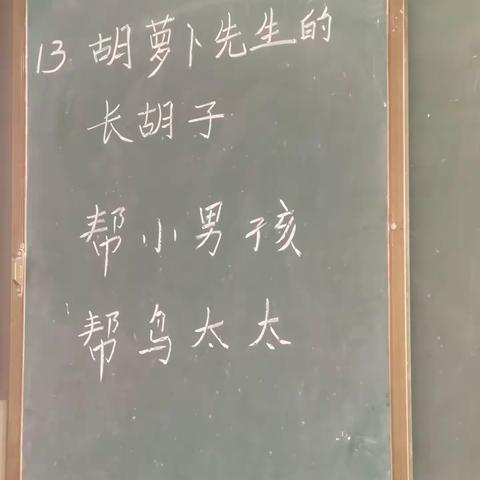 13 胡萝卜先生的
长胡子
帮小男孩
帮鸟太太